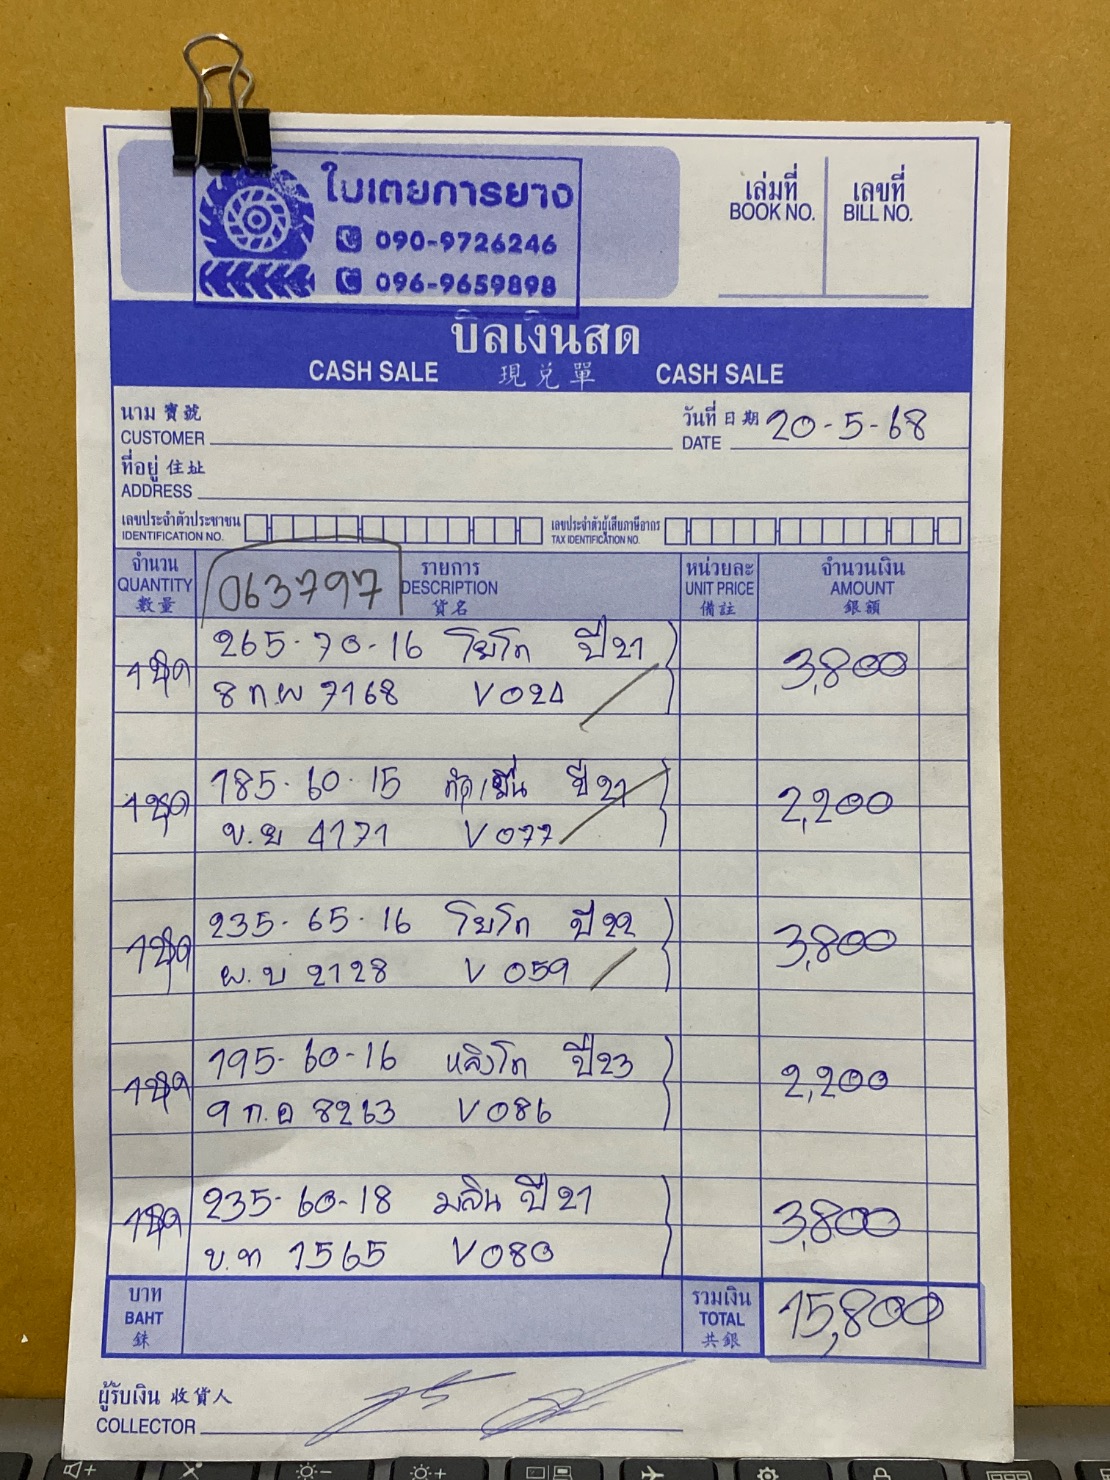 ใบเตยการยาง
090-9726246
096-9659898
เล่มที่
BOOK NO.
เลขที่
BILL NO.
บิลเงินสด
CASH SALE 現兌單 CASH SALE
นาม 寶號
CUSTOMER
วันที่ 日期 20-5-68
DATE
ที่อยู่ 住址
ADDRESS
เลขประจำตัวประชาชน
IDENTIFICATION NO.
เลขประจำตัวผู้เสียภาษีอากร
TAX IDENTIFICATION NO.
จำนวน
QUANTITY
數量
063797
รายการ
DESCRIPTION
貨名
หน่วยละ
UNIT PRICE
備註
จำนวนเงิน
AMOUNT
銀額
1ชุด 265-70-16 โยโก ปี21 3,800
8 ก.ผ 7168 V024
1ชุด 185-60-15 ปี 21 2,200
ข.ย 4171 V077
1ชุด 235-65-16 โยโก ปี 22 3,800
ผ.บ 2128 V059
1ชุด 195-60-16 หลิงโก ปี23 2,200
9 ก.อ 8263 V086
1ชุด 235-60-18 มลิน ปี 21 3,800
1565 V080
บาท
BAHT
銖
รวมเงิน
TOTAL
共銀
15,800
ผู้รับเงิน 收貨人
COLLECTOR